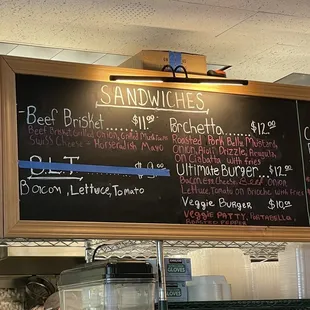 SANDWICHES
Beef Brisket........$11.00
Beef Brisket, Grilled Onion, Grilled Mushroom
Swiss Cheese + Horseradish Mayo
B.L.T. $9.00
Bacon, Lettuce, Tomato
Porchetta............$12.00
Roasted Pork Belly, Mustard,
Onion, Aioli Drizzle, Arugula,
On Ciabatta with fries
Ultimate Burger....$12.00
Bacon Cheese, Beef Onion
Lettuce, Tomato on Brioche with fries
Veggie Burger $10.00
Veggie Patty, Portabella,
Roasted Pepper
GLOVES